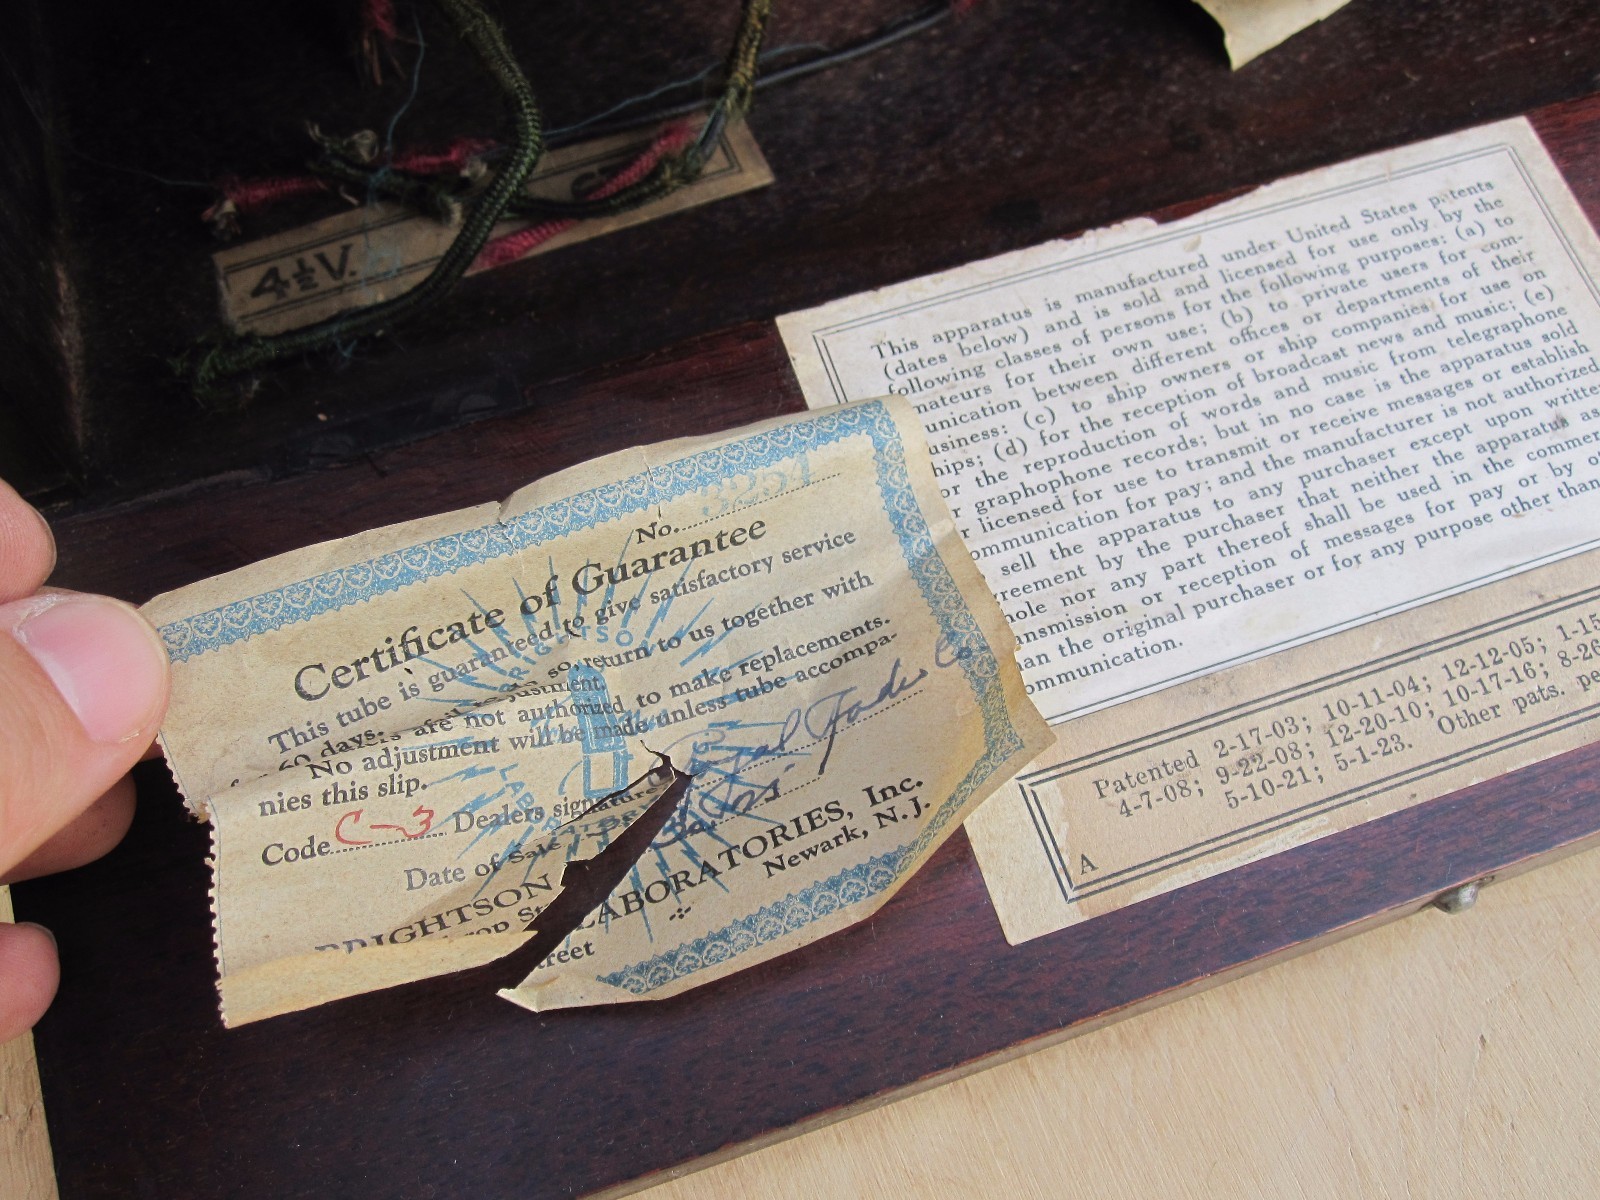 4½V.
This apparatus is manufactured under United States patents
(dates below) and is sold and licensed for use only by the
following classes of persons for the following purposes: (a) to
mateurs for their own use; (b) to private users for com-
unication between different offices or departments of their
usiness: (c) to ship owners or ship companies, for use on
hips; (d) for the reception of broadcast news and music; (e)
or the reproduction of words and music from telegraphone
r graphophone records; but in no case is the apparatus sold
r licensed for use to transmit or receive messages or establish
ommunication for pay; and the manufacturer is not authorized
sell the apparatus to any purchaser except upon written
reement by the purchaser that neither the apparatus as
hole nor any part thereof shall be used in the commer
ansmission or reception of messages for pay or by o
han the original purchaser or for any purpose other than
ommunication.
Patented 2-17-03; 10-11-04; 12-12-05; 1-15
4-7-08; 9-22-08; 12-20-10; 10-17-16; 8-26
5-10-21; 5-1-23. Other pats. pe
A
No.
Certificate of Guarantee
This tube is guaranteed to give satisfactory service
60 days. so, return to us together with
adjustment.
are not authorized to make replacements.
No adjustment will be made unless tube accompa-
nies this slip.
Code C-3 Dealers signature
Date of Sale
BRIGHTSON LABORATORIES, Inc.
Street Newark, N. J.